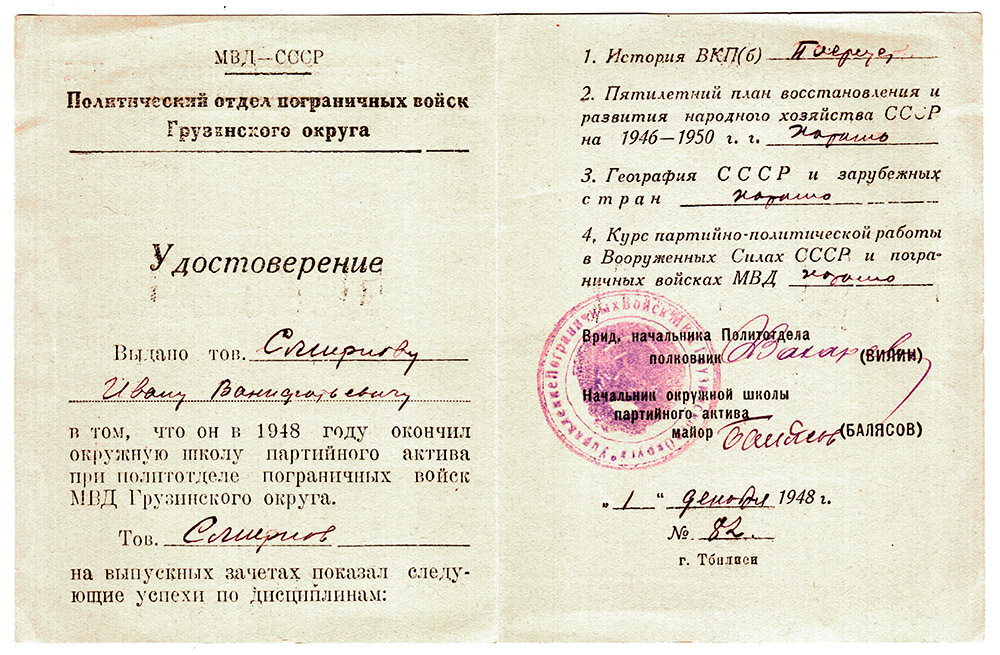 МВД—СССР
Политический отдел пограничных войск
Грузинского округа
Удостоверение
Выдано тов. Смирнову
Ивану Вонифатьевичу
в том, что он в 1948 году окончил
окружную школу партийного актива
при политотделе пограничных войск
МВД Грузинского округа.
Тов. Смирнов
на выпускных зачетах показал следу-
ющие успехи по дисциплинам:
1. История ВКП(б)
2. Пятилетний план восстановления и
развития народного хозяйства СССР
на 1946—1950 г. г. хорошо
3. География СССР и зарубежных
стран хорошо
4, Курс партийно-политической работы
в Вооруженных Силах СССР и погра-
ничных войсках МВД хорошо
Управление Пограничных Войск Округа
Врид, начальника Политотдела
полковник (ВИЛИН)
Начальник окружной школы
партийного актива
майор Балясов (БАЛЯСОВ)
„1“ декабря 1948 г.
№ 82.
г. Тбилиси